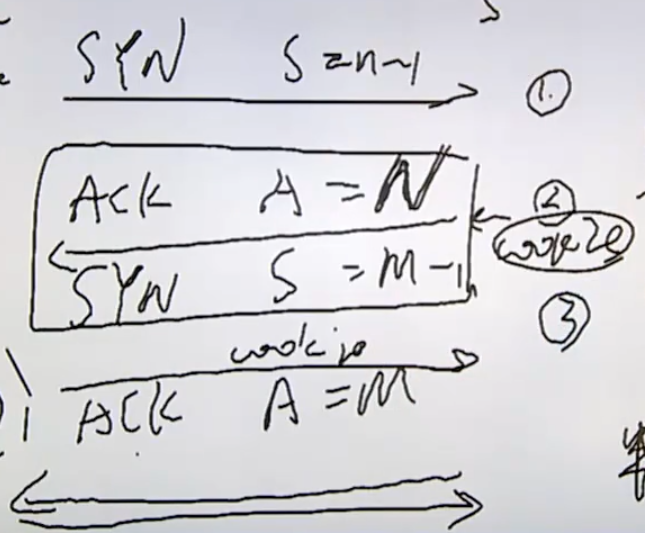 SYN S=n-1 ①
ACK A=N ②
cookie
SYN S=M-1
③
cookie
ACK A=M